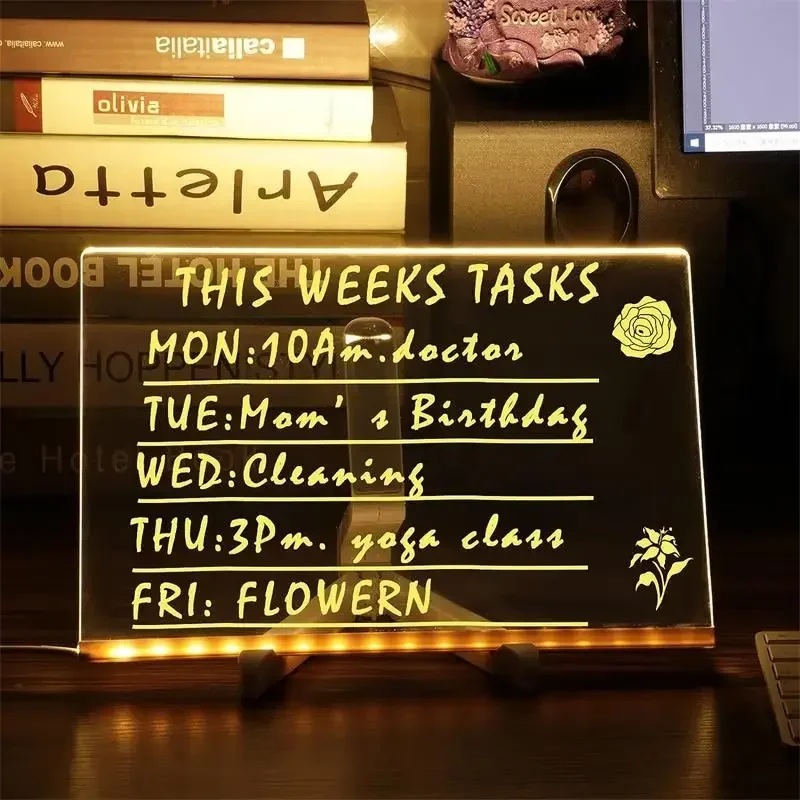 www.caliaitalia
caliaitalia
olivia
Arletta
THE HOTEL BOOK
Sweet Love
37.32%
THIS WEEKS TASKS
MON:10Am.doctor
TUE:Mom's Birthdag
WED:Cleaning
THU:3Pm. yoga class
FRI: FLOWERN